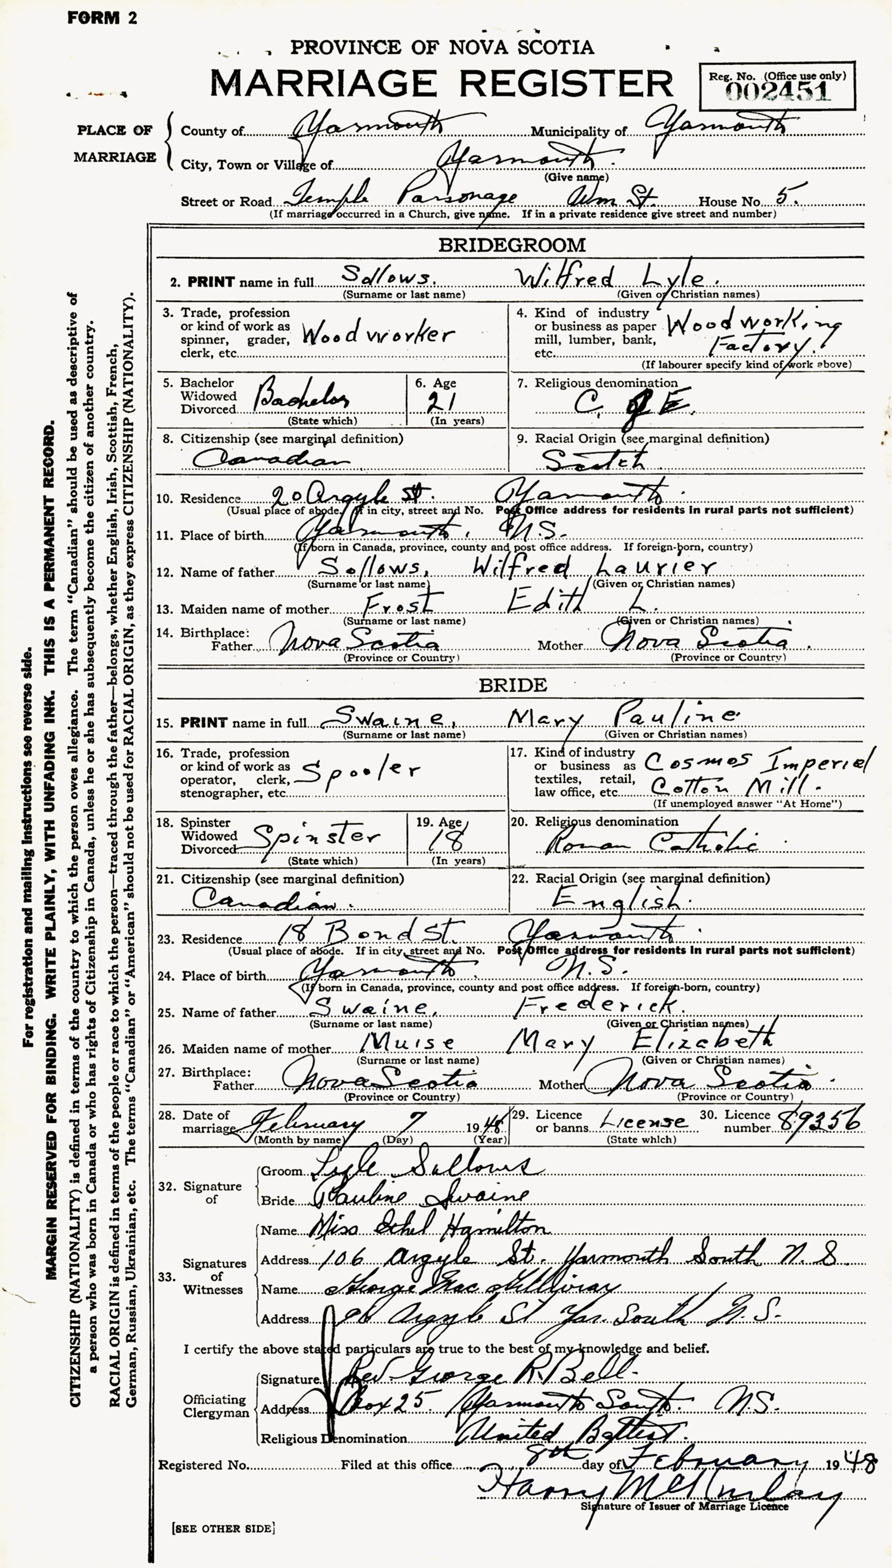 FORM 2
PROVINCE OF NOVA SCOTIA
MARRIAGE REGISTER
Reg. No. (Office use only)
002451
PLACE OF MARRIAGE
County of Yarmouth Municipality of Yarmouth
City, Town or Village of Yarmouth.
(Give name)
Street or Road Temple Parsonage Wm St. House No. 5.
(If marriage occurred in a Church, give name. If in a private residence give street and number)
BRIDEGROOM
2. PRINT name in full Sollows. Wilfred Lyle.
(Surname or last name) (Given or Christian names)
3. Trade, profession or kind of work as spinner, grader, clerk, etc. Woodworker
4. Kind of industry or business as paper mill, lumber, bank, etc. Woodworking Factory.
(If labourer specify kind of work above)
5. Bachelor Widowed Divorced Bachelor
(State which)
6. Age 21
(In years)
7. Religious denomination C of E.
8. Citizenship (see marginal definition) Canadian
9. Racial Origin (see marginal definition) Scotch
10. Residence 20 Argyle St. Yarmouth.
(Usual place of abode. If in city, street and No. Post Office address for residents in rural parts not sufficient)
11. Place of birth Yarmouth, N.S.
(If born in Canada, province, county and post office address. If foreign-born, country)
12. Name of father Sollows, Wilfred Laurier
(Surname or last name) (Given or Christian names)
13. Maiden name of mother Frost Edith L.
(Surname or last name) (Given or Christian names)
14. Birthplace: Father Nova Scotia Mother Nova Scotia.
(Province or Country) (Province or Country)
BRIDE
15. PRINT name in full Swaine, Mary Pauline
(Surname or last name) (Given or Christian names)
16. Trade, profession or kind of work as operator, clerk, stenographer, etc. Spooler
17. Kind of industry or business as textiles, retail, law office, etc. Cosmos Imperial Cotton Mill.
(If unemployed answer "At Home")
18. Spinster Widowed Divorced Spinster
(State which)
19. Age 18
(In years)
20. Religious denomination Roman Catholic
21. Citizenship (see marginal definition) Canadian.
22. Racial Origin (see marginal definition) English.
23. Residence 18 Bond St. Yarmouth.
(Usual place of abode. If in city, street and No. Post Office address for residents in rural parts not sufficient)
24. Place of birth Yarmouth. N.S.
(If born in Canada, province, county and post office address. If foreign-born, country)
25. Name of father Swaine, Frederick.
(Surname or last name) (Given or Christian names)
26. Maiden name of mother Muise Mary Elizabeth
(Surname or last name) (Given or Christian names)
27. Birthplace: Father Nova Scotia Mother Nova Scotia.
(Province or Country) (Province or Country)
28. Date of marriage February 7 1948
(Month by name) (Day) (Year)
29. Licence or banns License
(State which)
30. Licence number 89356
32. Signature of
Groom Lyle Sollows
Bride Pauline Swaine
33. Signatures of Witnesses
Name Miss Ethel Hamilton
Address 106 Argyle St. Yarmouth South N S
Name George MacGillivray
Address 96 Argyle St Yar. South N.S.
I certify the above stated particulars are true to the best of my knowledge and belief.
Officiating Clergyman
Signature Rev. George R. Bell.
Address Box 25. Yarmouth South. N.S.
Religious Denomination United Baptist.
Registered No. Filed at this office 8th day of February 1948
Harry McKinlay
Signature of Issuer of Marriage Licence
[SEE OTHER SIDE]
For registration and mailing instructions see reverse side.
MARGIN RESERVED FOR BINDING. WRITE PLAINLY, WITH UNFADING INK. THIS IS A PERMANENT RECORD.
CITIZENSHIP (NATIONALITY) is defined in terms of the country to which the person owes allegiance. The term "Canadian" should be used as descriptive of
a person who was born in Canada or who has rights of Citizenship in Canada, unless he or she has subsequently become the citizen of another country.
RACIAL ORIGIN is defined in terms of the people or race to which the person—traced through the father—belongs, whether English, Irish, Scottish, French,
German, Russian, Ukrainian, etc. The terms "Canadian" or "American" should not be used for RACIAL ORIGIN, as they express CITIZENSHIP (NATIONALITY).